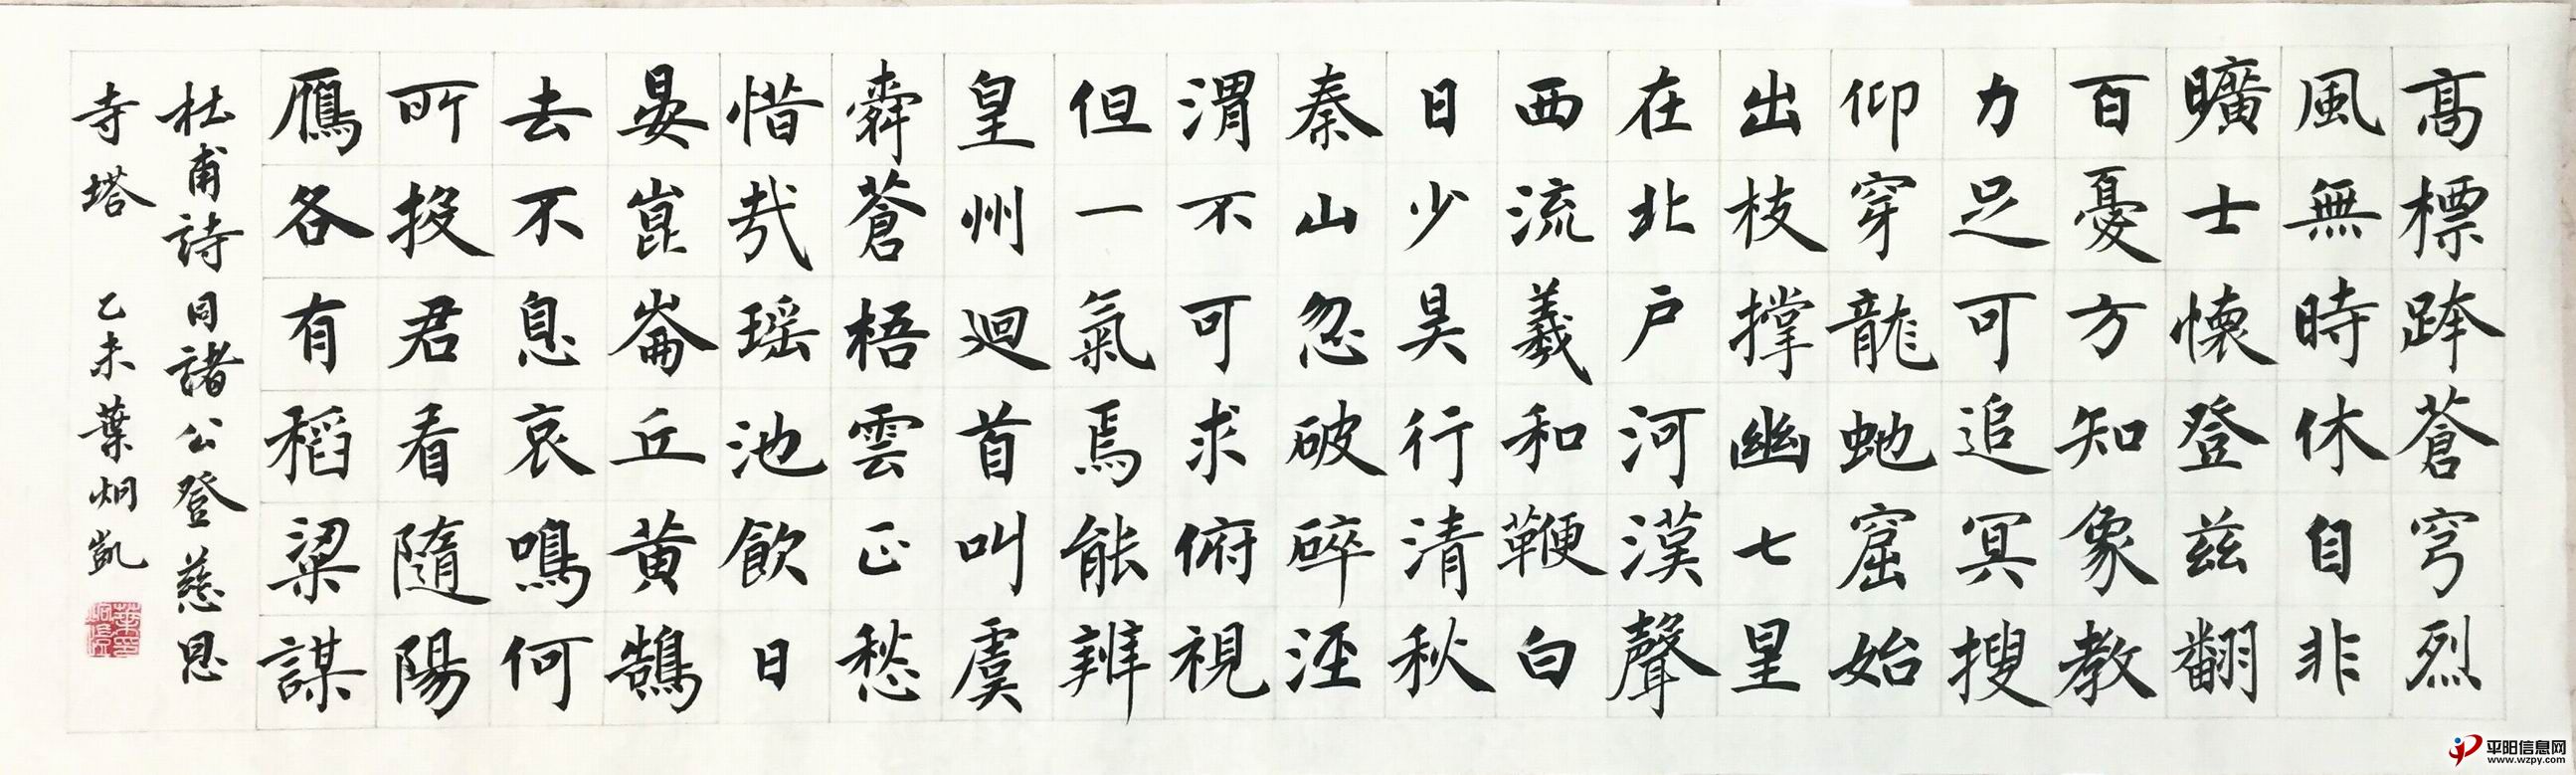 高標跨蒼穹烈
風無時休自非
曠士懷登兹翻
百憂方知象教
力足可追冥搜
仰穿龍虵窟始
出枝撑幽七星
在北户河漢聲
西流羲和鞭白
日少昊行清秋
秦山忽破碎涇
渭不可求俯視
但一氣焉能辨
皇州迴首叫虞
舜蒼梧雲正愁
惜哉瑶池飲日
晏崑崙丘黄鵠
去不息哀鳴何
所投君看隨陽
雁各有稻粱謀
杜甫詩同諸公登慈恩
寺塔 乙未葉炯凱
平阳信息网
www.wzpy.com